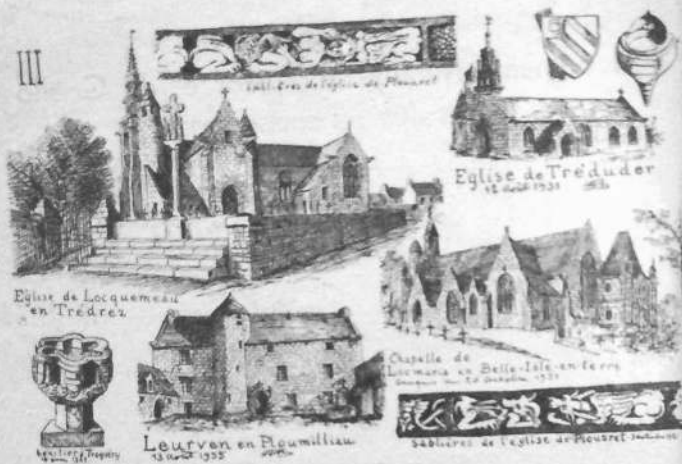 III
Sablières de l'église de Plouaret
Eglise de Tréduder
12 Août 1931
Eglise de Locquemeau
en Trédrez
Chapelle de
Locmaria en Belle-Isle-en-terre
Leurven en Ploumilliau
13 Août 1935
Sablières de l'église de Plouaret